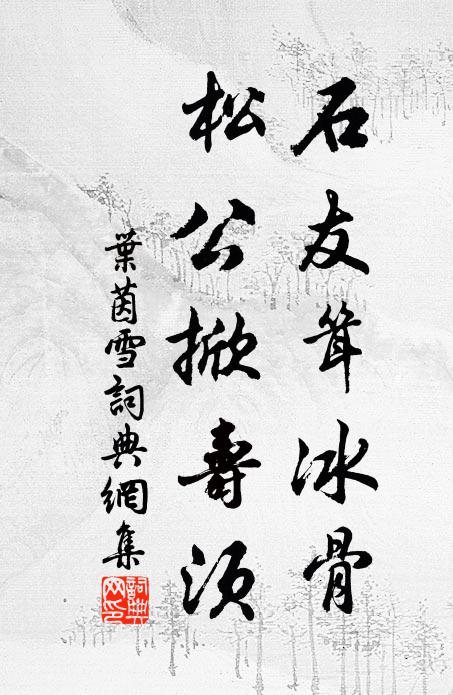 石友聳冰骨
松公掀壽須
葉茵雪詞典網集
詞典